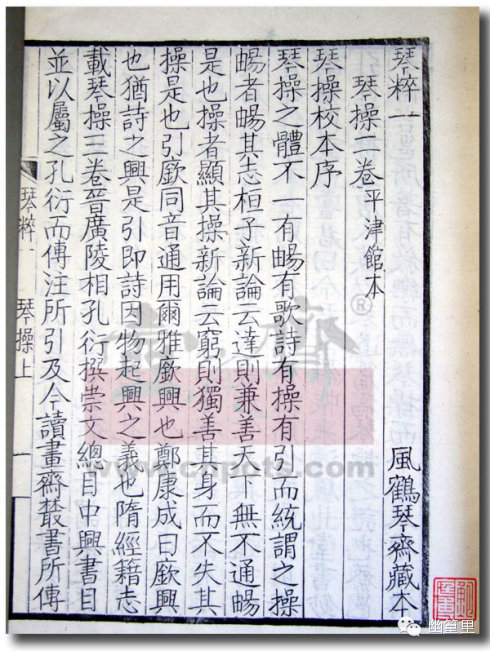 琴粹一
琴操二卷平津館本
風鶴琴齋藏本
琴操校本序
琴操之體不一有暢有歌詩有操有引而統謂之操
暢者暢其志桓子新論云達則兼善天下無不通暢
是也操者顯其操新論云窮則獨善其身而不失其
操是也引歆同音通用爾雅歆興也鄭康成曰歆興
也猶詩之興是引即詩因物起興之義也隋經籍志
載琴操三卷晉廣陵相孔衍撰崇文總目中興書目
並以屬之孔衍而傳注所引及今讀畫齋叢書所傳
琴粹一 琴操上 一
www.cnpots.com
®
幽篁里